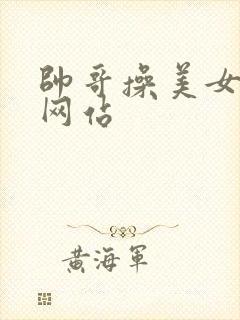 帥哥操美女
网站
黄海軍